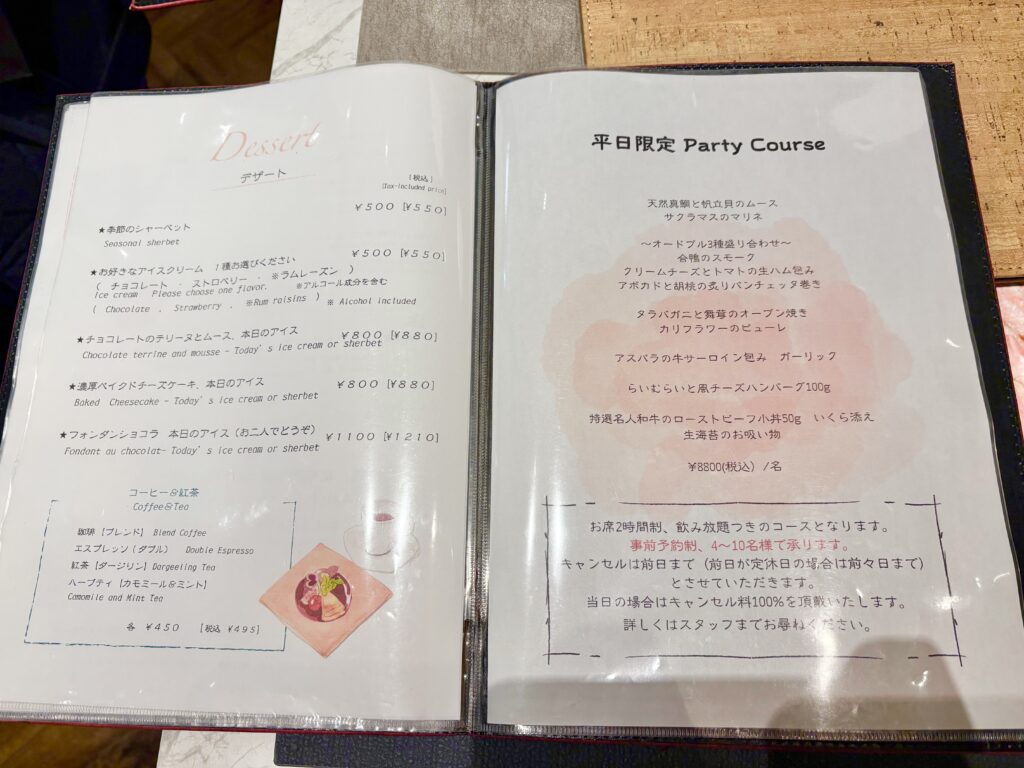 Dessert
デザート
[税込]
[Tax-included price]
¥500 [¥550]
★季節のシャーベット
Seasonal sherbet
¥500 [¥550]
★お好きなアイスクリーム 1種お選びください
( チョコレート ・ ストロベリー ・ ※ラムレーズン )
※アルコール成分を含む
Ice cream Please choose one flavor.
( Chocolate . Strawberry . ※Rum raisins ) ※ Alcohol included
★チョコレートのテリーヌとムース、本日のアイス ¥800 [¥880]
Chocolate terrine and mousse - Today's ice cream or sherbet
★濃厚ベイクドチーズケーキ、本日のアイス ¥800 [¥880]
Baked Cheesecake - Today's ice cream or sherbet
★フォンダンショコラ 本日のアイス(お二人でどうぞ) ¥1100 [¥1210]
Fondant au chocolat- Today's ice cream or sherbet
コーヒー&紅茶
Coffee&Tea
珈琲 [ブレンド] Blend Coffee
エスプレッソ(ダブル) Double Espresso
紅茶 [ダージリン] Dargeeling Tea
ハーブティ [カモミール&ミント]
Camomile and Mint Tea
各 ¥450 [税込 ¥495]
平日限定 Party Course
天然真鯛と帆立貝のムース
サクラマスのマリネ
～オードブル3種盛り合わせ～
合鴨のスモーク
クリームチーズとトマトの生ハム包み
アボカドと胡桃の炙りパンチェッタ巻き
タラバガニと舞茸のオーブン焼き
カリフラワーのピューレ
アスパラの牛サーロイン包み ガーリック
らいむらいと風チーズハンバーグ100g
特選名人和牛のローストビーフ小丼50g いくら添え
生海苔のお吸い物
¥8800(税込) /名
お席2時間制、飲み放題つきのコースとなります。
事前予約制、4～10名様で承ります。
キャンセルは前日まで(前日が定休日の場合は前々日まで)
とさせていただきます。
当日の場合はキャンセル料100%を頂戴いたします。
詳しくはスタッフまでお尋ねください。